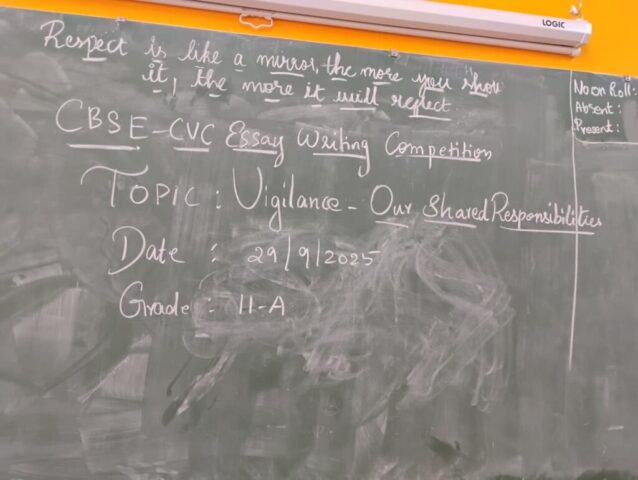 LOGIC
Respect is like a mirror, the more you show
it, the more it will reflect
No on Roll:
Absent :
Present :
CBSE-CVC Essay Writing Competition
TOPIC : Vigilance - Our Shared Responsibilities
Date : 29/9/2025
Grade : 11-A